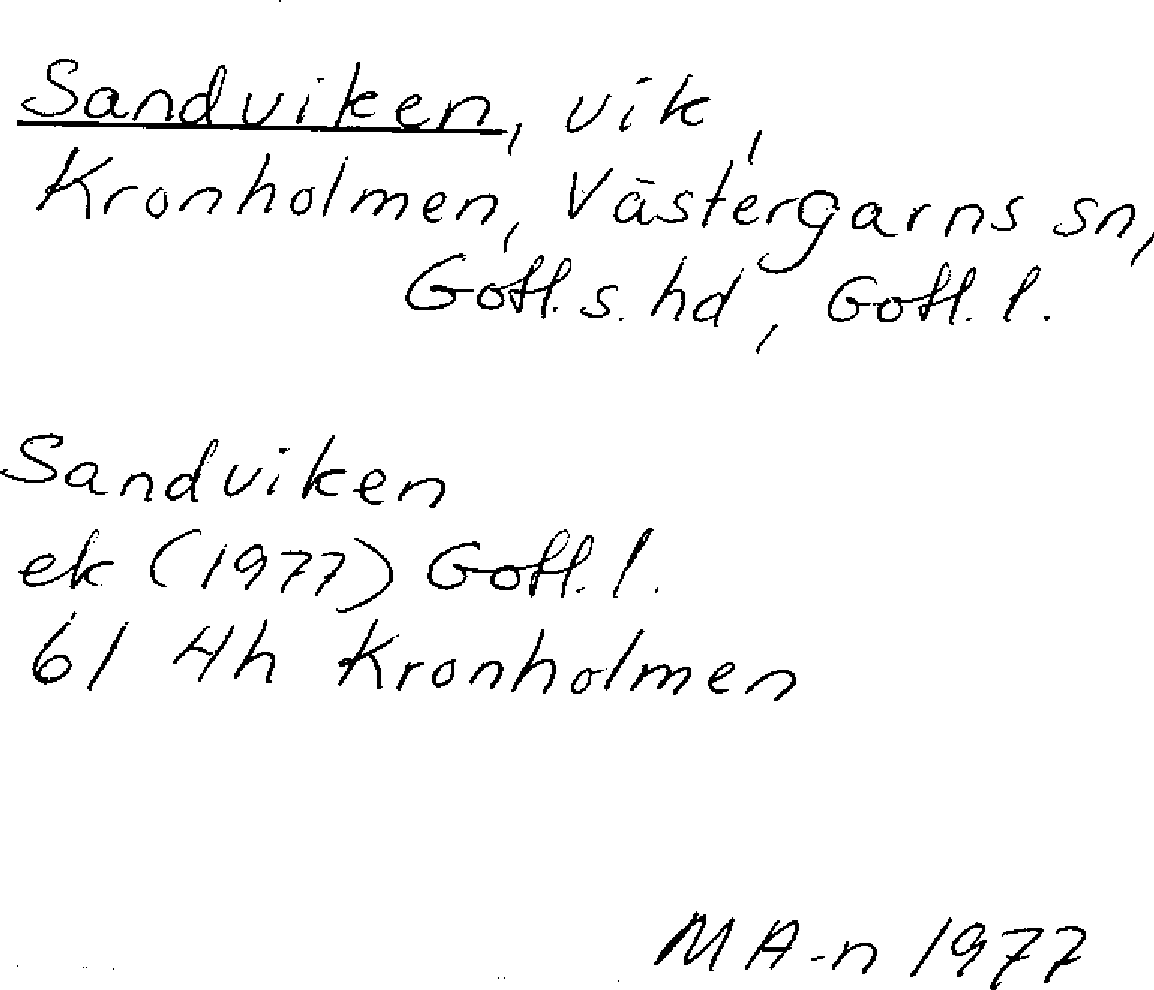 Sandviken, vik,
Kronholmen, Västergarns sn,
Gotl. s. hd, Gotl. l.
Sandviken
ek (1977) Gotl. l.
6I 4h Kronholmen
MA-n 1977